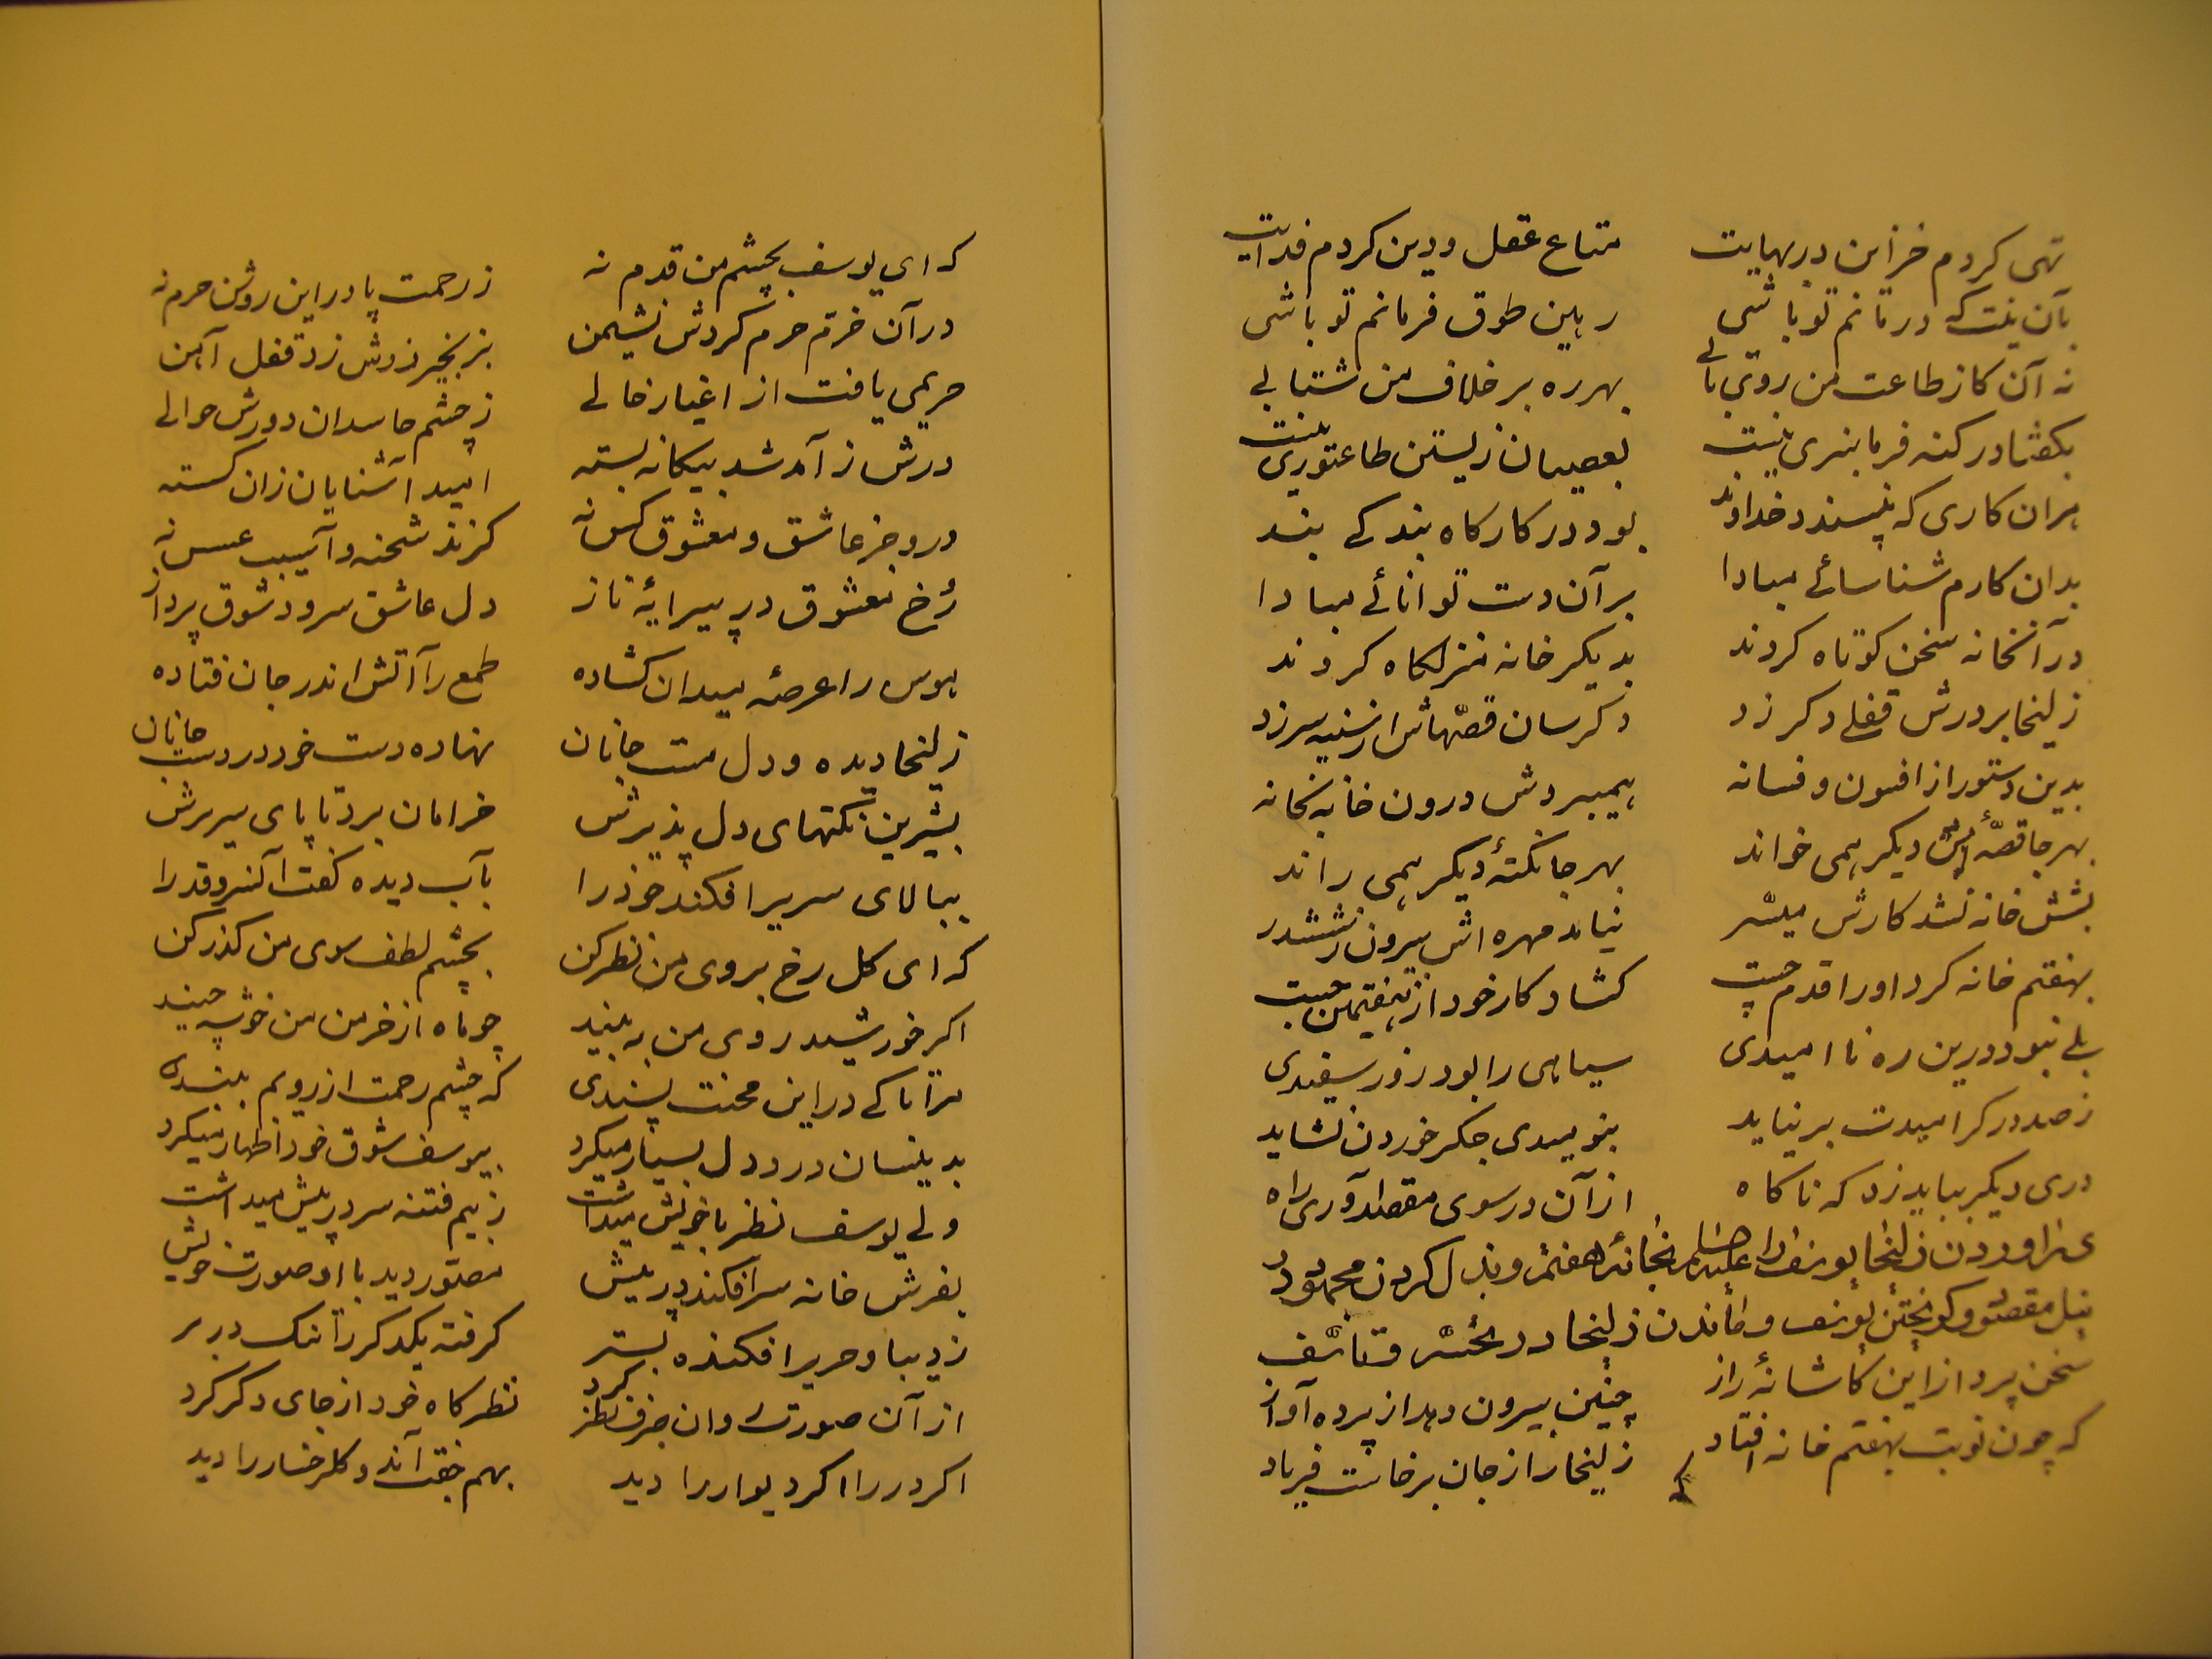 تهی کردم خزاین در بهایت
متاع عقل و دین کردم فدایت
بآن نیت که درمانم تو باشی
رهین طوق فرمانم تو باشی
نه آن کاز طاعت من روی تابی
بهر ره بر خلاف من شتابی
بکفتا در کنه فرمانبری نیست
بعصیان زیستن طاعتوری نیست
هران کاری که نپسندد خداوند
بود در کارکاه بندکی بند
بدان کارم شناسائے مبادا
بر آن دست توانائے مبادا
در آنخانه سخن کوتاه کردند
بدیکر خانه منزلکاه کردند
زلیخا بر درش قفلے دکر زد
دکرسان قصهاش از سینه سر زد
بدین دستور از افسون و فسانه
همیبردش درون خانه بخانه
بهر جا قصهٔ دیکر همی خواند
بهر جا نکتهٔ دیکر همی راند
بشش خانه نشد کارش میسّر
نیامد مهره اش بیرون ز ششدر
بهفتم خانه کرد او را قدم چست
کشاد کار خود از هفتمین جست
بلے نبود درین ره نا امیدی
سیاهی را بود روز سفیدی
ز صد در کر امیدت بر نیاید
بنومیدی جکر خوردن نشاید
دری دیکر بباید زد که ناکاه
از آن در سوی مقصد آوری راه
در اوردن زلیخا یوسف را علیه السلم بخانهٔ هفتم و بذل کردن مجهود در
نیل مقصود و کریختن یوسف و ماندن زلیخا در تحسّر و تاسّف
سخن پرداز این کاشانهٔ راز
چنین بیرون دهد از پرده آواز
که چون نوبت بهفتم خانه افتاد
زلیخا را ز جان برخاست فریاد
که ای یوسف بچشم من قدم نه
ز رحمت پا در این روشن حرم نه
در آن خرّم حرم کردش نشیمن
بزنجیر زرش زد قفل آهن
حریمی یافت از اغیار خالے
ز چشم حاسدان دورش حوالے
درش ز آمد شد بیکانه بسته
امید آشنایان زان کسسته
درو جز عاشق و معشوق کس نه
کزند شحنه و آسیب عسس نه
رُخ معشوق در پیرایهٔ ناز
دل عاشق سرود شوق پرداز
هوس را عرصهٔ میدان کشاده
طمع را آتش اندر جان فتاده
زلیخا دیده و دل مست جانان
نهاده دست خود در دست جانان
بشیرین نکتهای دل پذیرش
خرامان برد تا پای سریرش
ببالای سریر افکند خود را
بآب دیده کفت آنسرو قد را
که ای کل رخ بروی من نظر کن
بچشم لطف سوی من کذر کن
اکر خورشید روی من به بیند
چو ماه از خرمن من خوشه چیند
مرا تا کے در این محنت پسندی
که چشم رحمت از رویم ببندی
بدینسان درد دل بسیار میکرد
بیوسف شوق خود اظهار میکرد
ولے یوسف نظر با خویش میداشت
ز بیم فتنه سر در پیش میداشت
بفرش خانه سر افکند در پیش
مصوّر دید با او صورت خویش
ز دیبا و حریر افکنده بستر
کرفته یکدکر را تنک در بر
از آن صورت روان صرف نظر کرد
نظرکاه خود از جای دکر کرد
اکر در را اکر دیوار را دید
بهم جفت آندو کلرخسار را دید